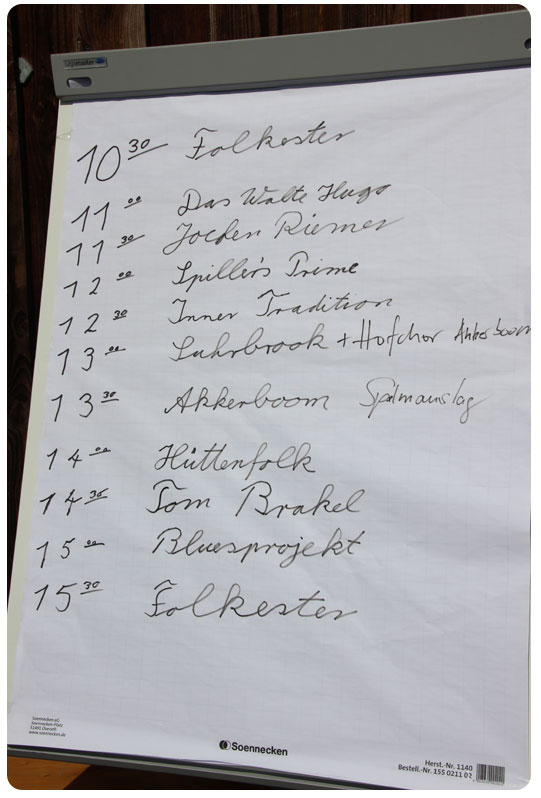 10 30 Folkester
11 00 Das Walte Hugo
11 30 Jochen Riemer
12 00 Spiller's Prime
12 30 Inner Tradition
13 00 Luhrbrook + Hofchor Akkerboom
13 30 Akkerboom Spälmanslag
14 00 Hüttenfolk
14 30 Tom Brakel
15 00 Bluesprojekt
15 30 Folkester
Soennecken eG
Soennecken-Platz
51491 Overath
www.soennecken.de
Soennecken
Herst.-Nr. 1140
Bestell.-Nr. 155 0211 02